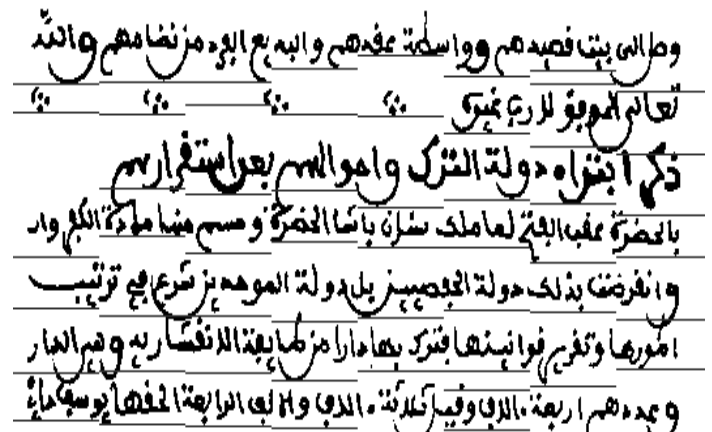 وطالى بيت فصيدهم وواسطة عقدهم والبديع البرد من نضامهم والله
تعالى الموفق لا رب غيره
ذكر ابتداء دولة الترك واحوالهم بعد استقرارهم
بالحضرة عقب الفتح لما ملك سنان باشا الحضرة وحسم منها مادة الكفر وار
وانقرضت بذلك دولة الحفصيين بل دولة الموحدين شرع في ترتيب
امورها وتقرير قوانينها فترك بها دارا من طايفة الانقشارية وهي الدار
وعددهم اربعة الاف وقيل ثلاثة الاف والى الرابعة الحقها يوسف داي